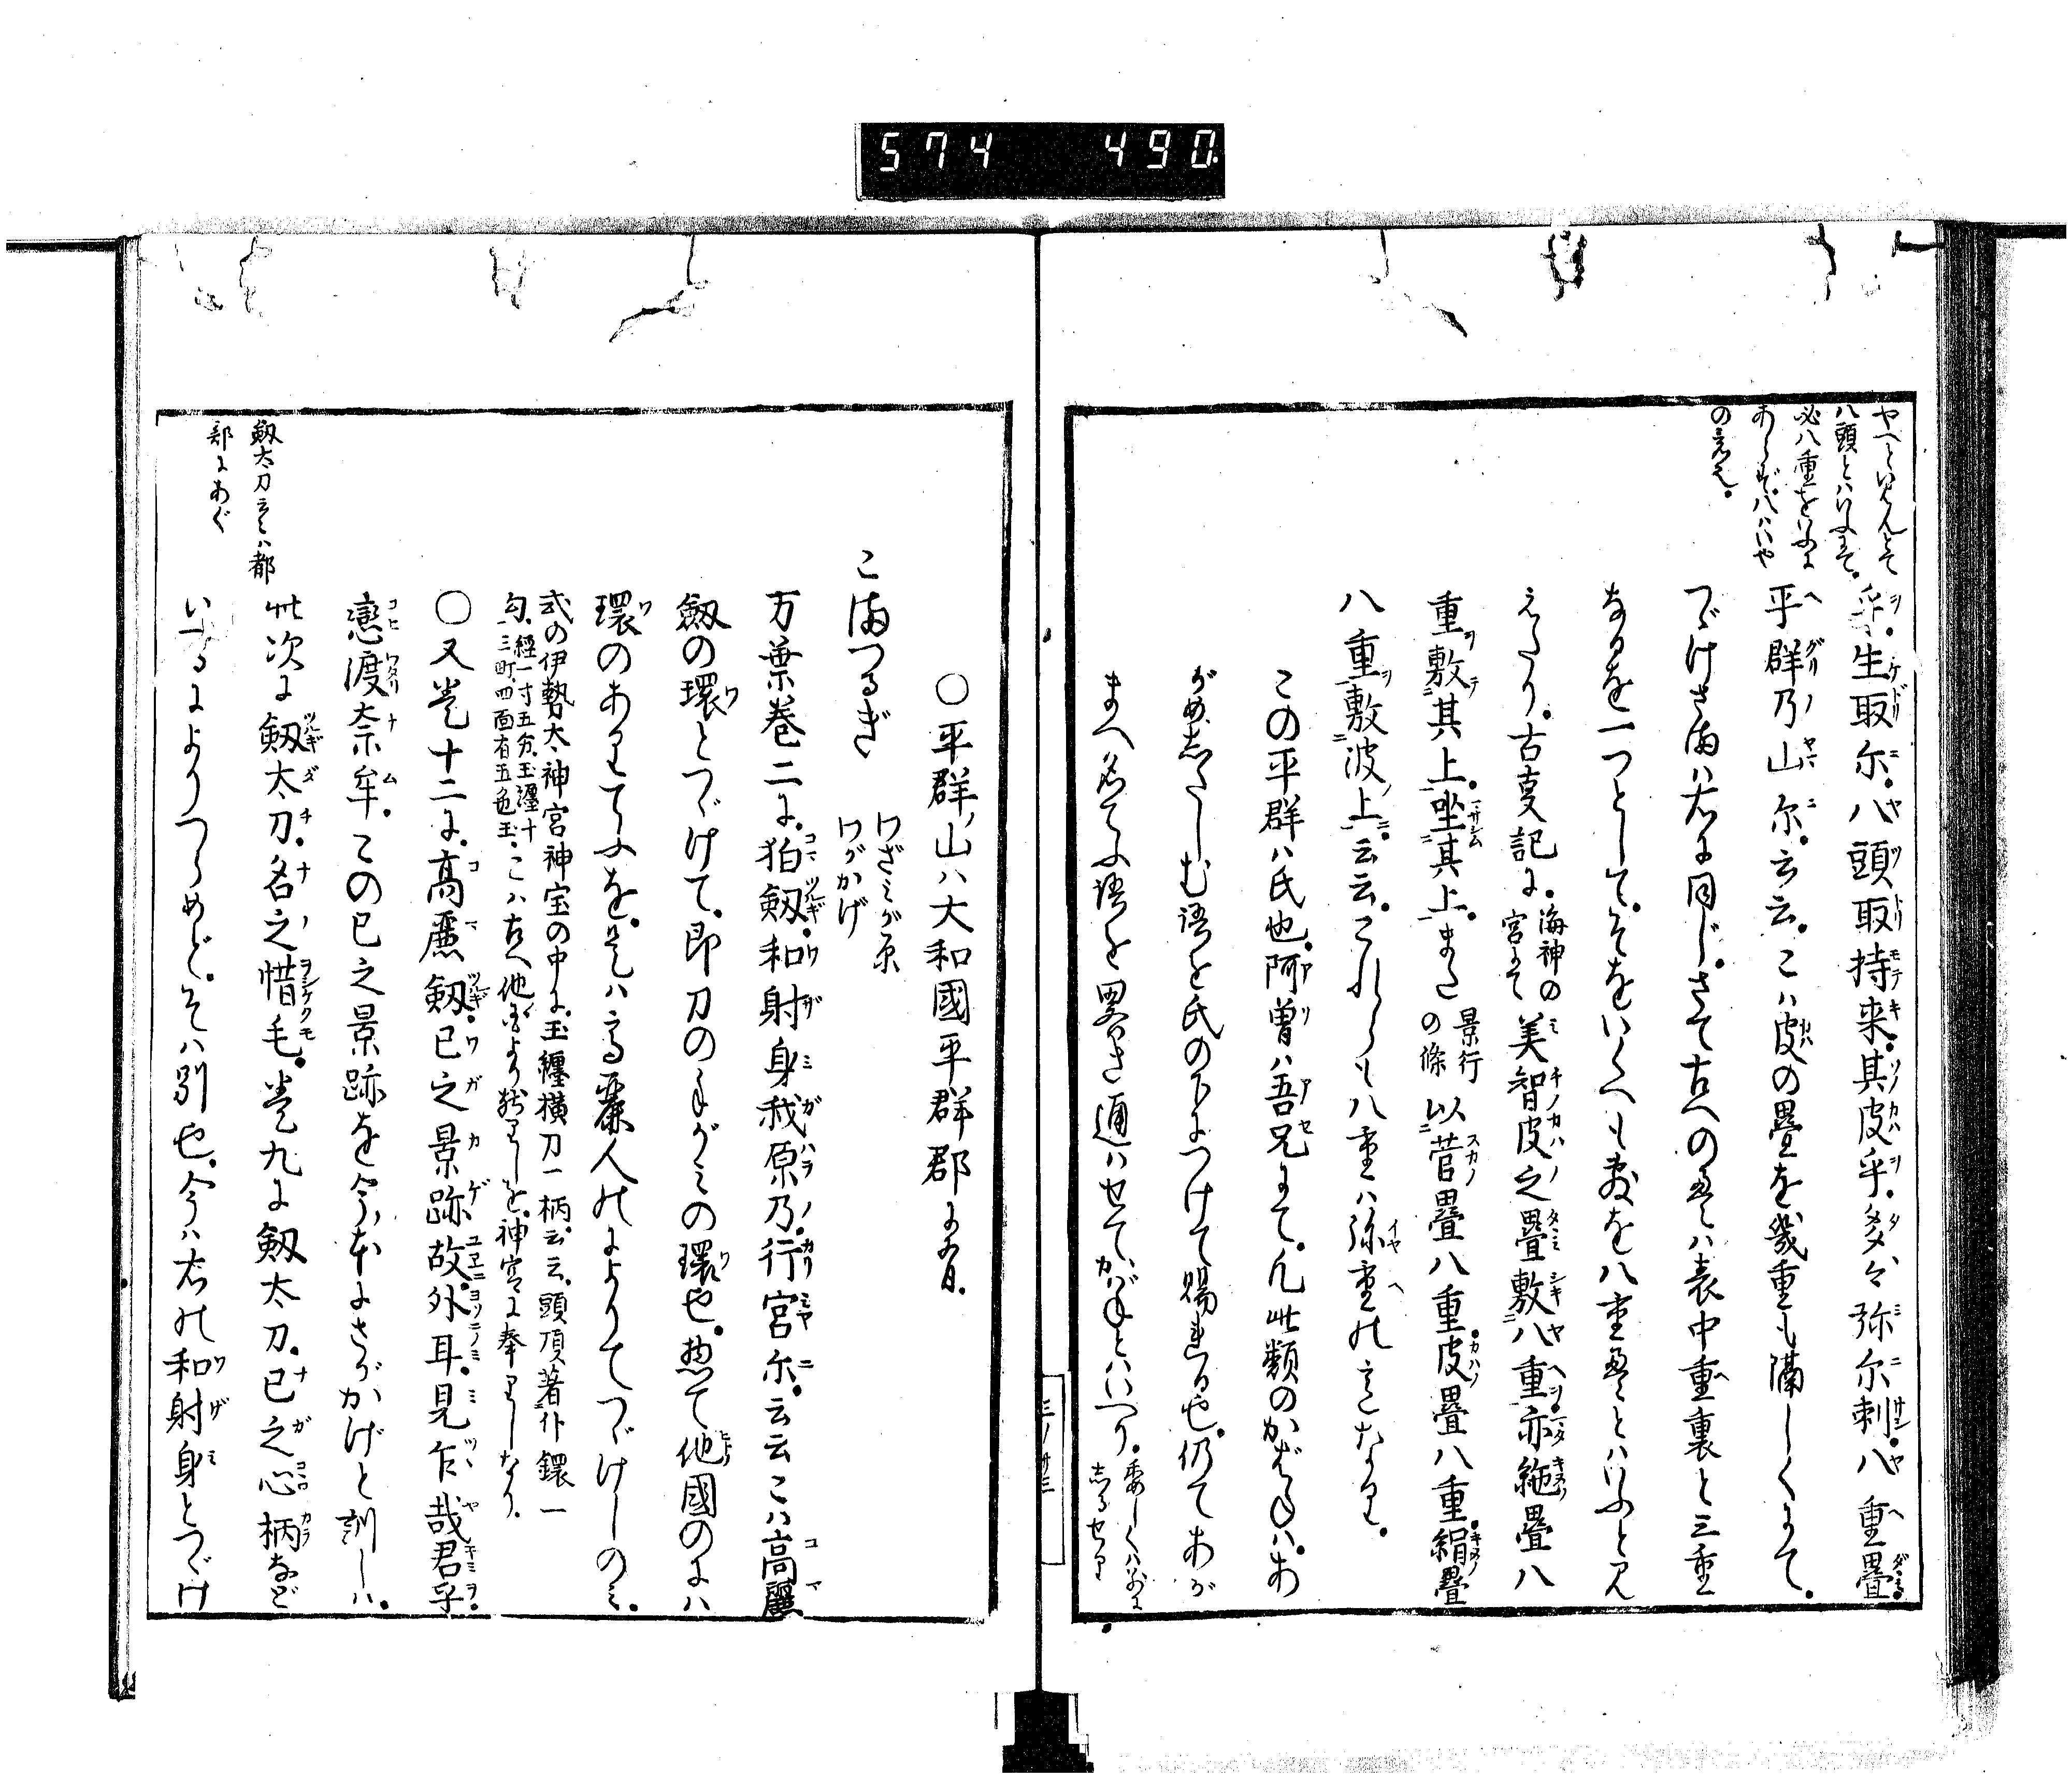 574 490
やへといはんとて
八頭とはいふにて
必八重をいふに
あらず、八はいや
のこゝろ也。
乎。生取尓。八頭取持来。其皮乎。多々弥尓刺。八重疊
平群乃山尓。云云。こは皮の疊を幾重も隔しくにて。
つゞけさまは右に同じ。さて古への疊は表中重裏と三重
なるを一つとして。それをいくへも敷を八重疊とはいふと見
えたり。古事記に。海神の宮にて美智皮之疊敷八重亦絁疊八
重敷其上。坐其上。また景行の條以菅疊八重。皮疊八重。絹疊
八重敷波上。云云。これらも八重は弥重のこゝろなり。
この平群は氏也。阿曽は吾兄にて。凡此類のかばねは。あ
がめしたしむ語を氏の下につけて賜れる也。仍てあが
まへ名てふ語を畧き通はせて、かばねとはいへり。委しくは別にしるせり
三ノ廿三
○平群ノ山は大和國平群郡に有。
こまつるぎ
わざみが原
わがかげ
万葉巻二に。狛劔。和射身我原乃。行宮尓。云云こは高麗
劔の環とつゞけて。即刀の手がみの環也。惣て他國のには
環のありてふを。是は高麗人のによりてつゞけしのみ。
式の伊勢太神宮神宝の中に。玉纏横刀一柄。云云。頭頂著仆鐶一
勾。經一寸五分、玉纏十三町、四面有五色玉。こは古へ他國より献りしを。神宮に奉りしなり。
○又巻十二に。高麗劔。己之景跡故。外耳見乍哉君乎。
戀渡奈牟。この己之景跡を今本にさがかげと訓しは。
此次に劔太刀。名之惜毛。巻九に劔太刀。己之心柄など
いへるによりつらめど。そは別也。今は右の和射身とつゞけ
劔太刀云々は都
部にあぐ